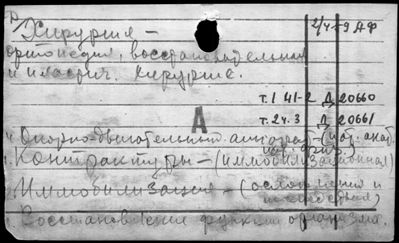 Хирургия —
ортопедия, восстановительная
и пластич. хирургия.
2/4-59 ДФ
т.1 41-2 Д 20660
т.2ч.3 Д 20661
А
Опорно-двигательный аппарат — (пат. анат.
Контрактуры — (иммобилизационная)
Иммобилизация — (осложнения и
Восстановление функции организма.